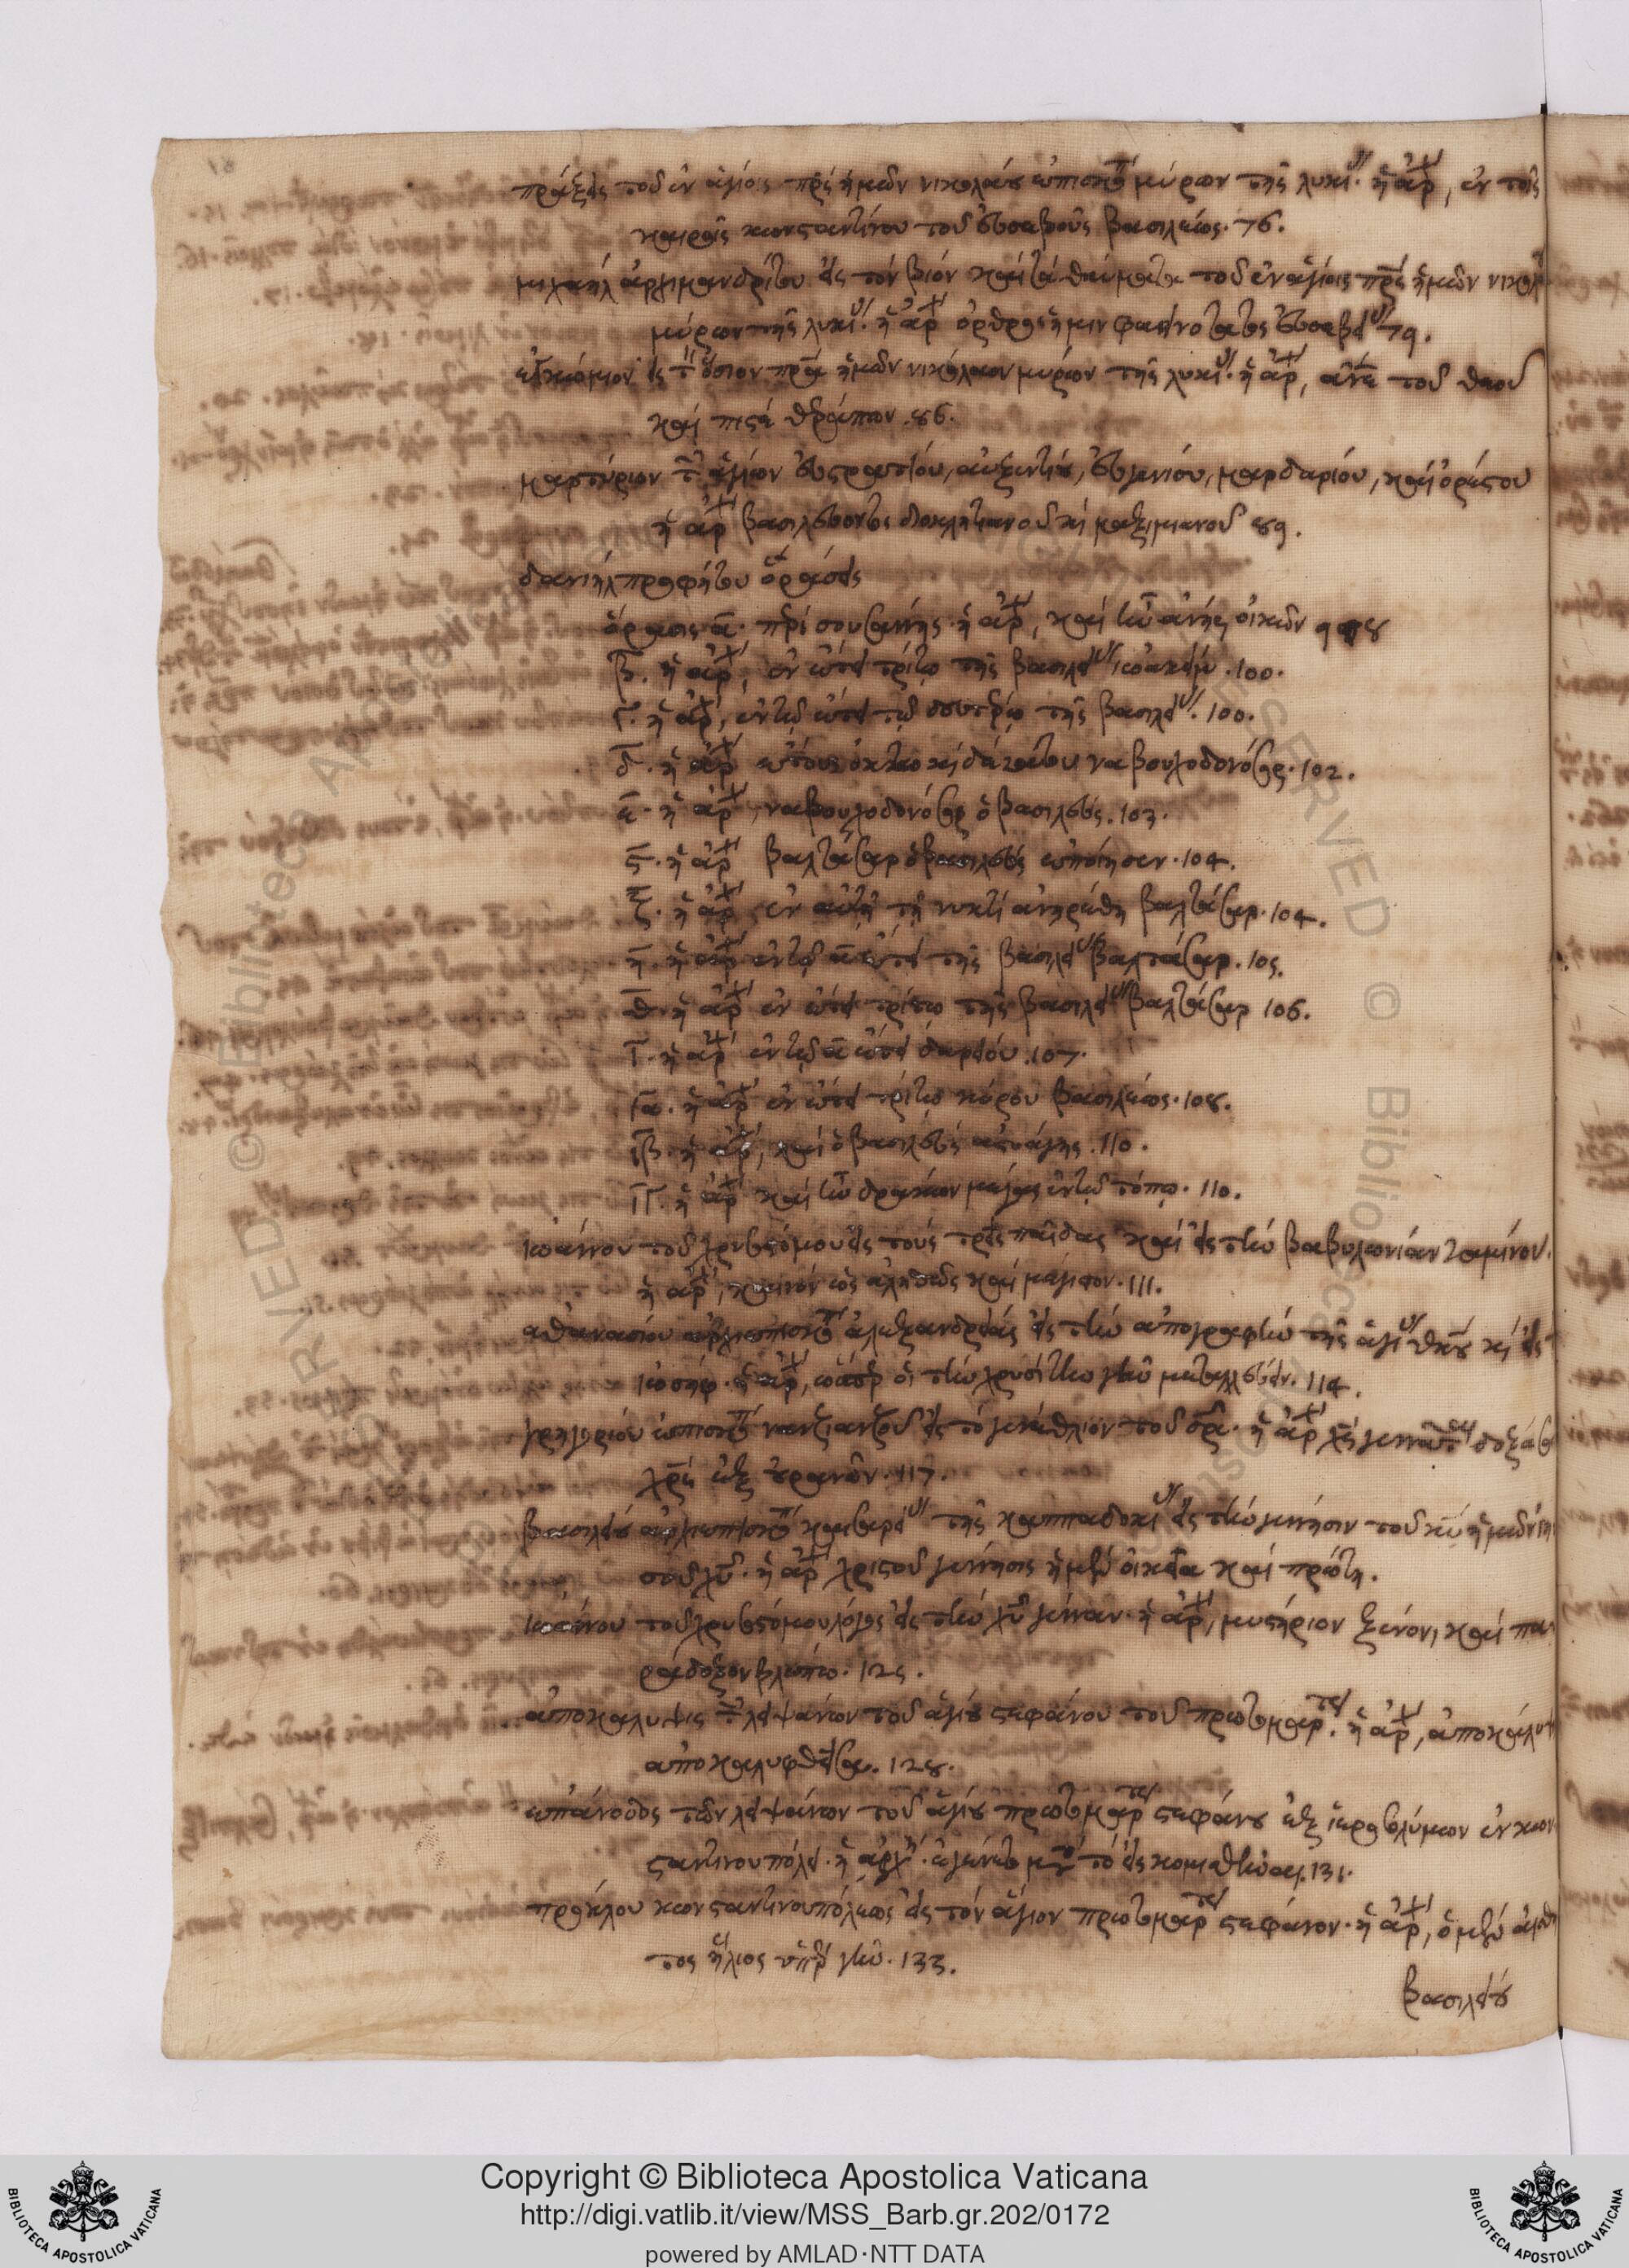 πράξεις τοῦ ἐν ἁγίοις πρς ἡμῶν νικολάου ἐπισκπ μύρων τῆς λυκί. ἡ ἀρχ, ἐν τοῖς
καιροῖς κωνσταντίνου τοῦ εὐσεβοῦς βασιλέως. 76.
μιχαὴλ ἀρχιμανδρίτου εἰς τὸν βίον καὶ τὰ θαύματα τοῦ ἐν ἁγίοις πρς ἡμῶν νικολ
μύρων τῆς λυκί. ἡ ἀρχ 79.
ἐγκώμιον εἰς τ ὅσιον πρα ἡμῶν νικόλαον μύρων τῆς λυκί. ἡ ἀρχ, ἄνε τοῦ θεοῦ
καὶ πιστὲ θεράπων. 86.
μαρτύριον τ ἁγίων εὐστρατίου, αὐξεντίου, εὐγενίου, μαρδαρίου, καὶ ὀρέστου
ἡ ἀρχ βασιλεύοντος διοκλητιανοῦ κὶ μαξιμιανοῦ 89.
δανιὴλ προφήτου ὁράσεις
ὅρασις α. περὶ σουσάννης. ἡ ἀρχ, καὶ ἦν ἀνὴρ οἰκῶν 98
β. ἡ ἀρχ, ἐν ἔτει τρίτῳ τῆς βασιλεί ἰωακείμ. 100.
γ. ἡ ἀρχ, ἐν τῷ ἔτει τῷ δευτέρῳ τῆς βασιλεί. 100.
δ. ἡ ἀρχ ἔτους ὀκτωκαιδεκάτου ναβουχοδονόσορ. 102.
ε. ἡ ἀρχ, ναβουχοδονόσορ ὁ βασιλεύς. 103.
ς. ἡ ἀρχ βαλτάσαρ ὁ βασιλεὺς ἐποίησεν. 104.
ζ. ἡ ἀρχ ἐν αὐτῇ τῇ νυκτὶ ἀνῃρέθη βαλτάσαρ. 104.
η. ἡ ἀρχ ἐν τῷ α ἔτει τῆς βασιλεί βαλτάσαρ. 105.
θ. ἡ ἀρχ ἐν ἔτει τρίτῳ τῆς βασιλεί βαλτάσαρ 106.
ι. ἡ ἀρχ ἐν τῷ α ἔτει δαρείου. 107.
ια. ἡ ἀρχ ἐν ἔτει τρίτῳ κύρου βασιλέως. 108.
ιβ. ἡ ἀρχ, καὶ ὁ βασιλεὺς ἀστυάγης. 110.
ιγ. ἡ ἀρχ καὶ ἦν δράκων μέγας ἐν τῷ τόπῳ. 110.
ἰωάννου τοῦ χρυσοστόμου εἰς τοὺς τρεῖς παῖδας καὶ εἰς τὴν βαβυλωνίαν καμίνου.
ἡ ἀρχ, καινὸν ὡς ἀληθῶς καὶ 111.
ἀθανασίου ἀρχιεπισκπ ἀλεξανδρείας εἰς τὴν ἀπογραφὴν τῆς ἁγί θκου κὶ εἰς τ
ἰωσήφ. ἡ ἀρχ, ὥσπερ οἱ τὴν χρυσῖτιν γῆν μεταλλεύειν. 114.
γρηγορίου ἐπισκπ νανζιανζοῦ εἰς τὸ γενέθλιον τοῦ σρς. ἡ ἀρχ χς γεννᾶται δοξάσ
χς ἐξ οὐρανῶν. 117.
βασιλείου ἀρχιεπισκπ καισαρεί τῆς καππαδοκί εἰς τὴν γέννησιν τοῦ κυ ἡμῶν ἰη
σοῦ χυ. ἡ ἀρχ χριστοῦ γέννησις ἡ μὲν οἰκεία καὶ πρώτη.
ἰωάννου τοῦ χρυσοστόμου λόγος εἰς τὴν χυ γένναν. ἡ ἀρχ, μυστήριον ξένον, καὶ πα
ράδοξον βλέπω. 125.
ἀποκάλυψις τ λειψάνων τοῦ ἁγίου στεφάνου τοῦ πρωτομάρ. ἡ ἀρχ, ἀποκάλυψ
ἀποκαλυφθεῖσα. 128.
ἐπάνοδος τῶν λειψάνων τοῦ ἁγίου πρωτομάρ στεφάνου ἐξ ἱεροσολύμων ἐν κων
σταντινουπόλει. ἡ ἀρχ. ἐγένετο 131.
πρόκλου κωνσταντινουπόλεως εἰς τὸν ἅγιον πρωτομάρ στέφανον. ἡ ἀρχ, ὁ μὲν αἰσθη
τὸς ἥλιος ὑπὲρ γῆν. 133.
βασιλείου
Copyright © Biblioteca Apostolica Vaticana
http://digi.vatlib.it/view/MSS_Barb.gr.202/0172
powered by AMLAD·NTT DATA
BIBLIOTECA APOSTOLICA VATICANA
BIBLIOTECA APOSTOLICA VATICANA